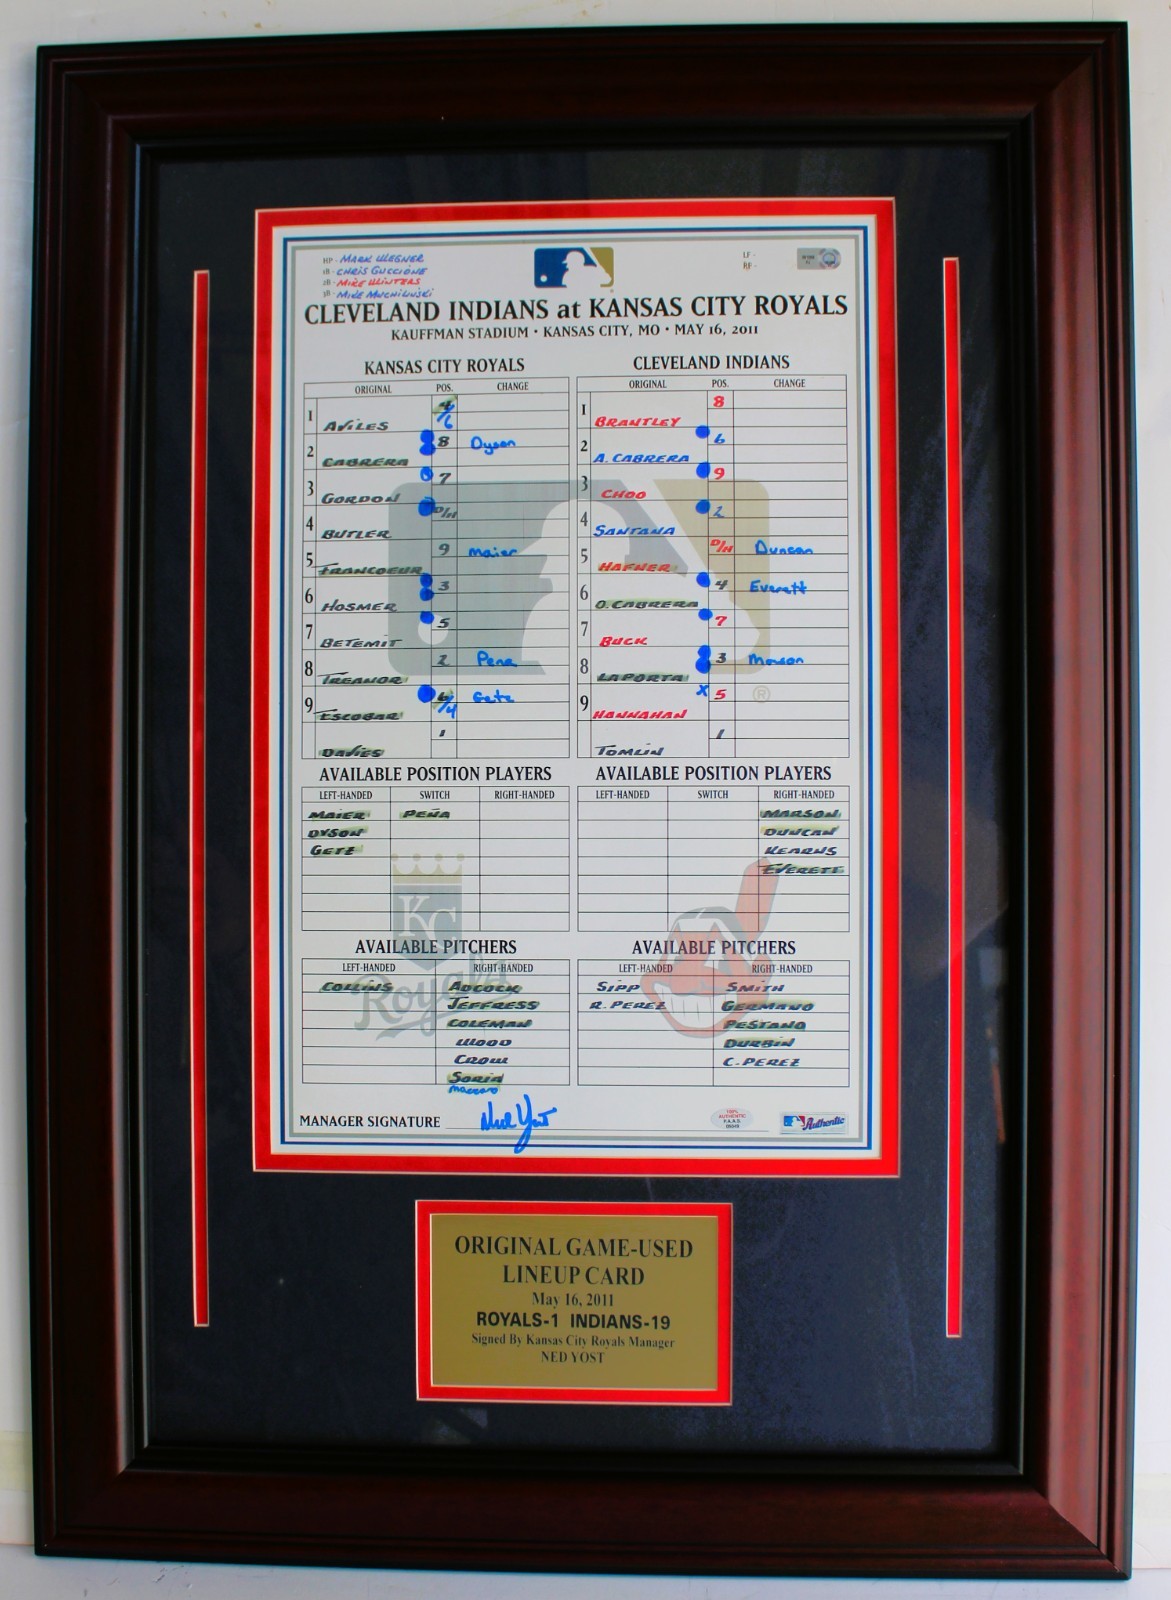 HP - MARK WEGNER
1B - CHRIS GUCCIONE
2B - MIKE WINTERS
3B - MIKE MUCHLINSKI
LF -
RF -
CLEVELAND INDIANS at KANSAS CITY ROYALS
KAUFFMAN STADIUM • KANSAS CITY, MO • MAY 16, 2011
KANSAS CITY ROYALS
ORIGINAL POS. CHANGE
1 AVILES 4/6
2 CABRERA 8 Dyson
3 GORDON 7
4 BUTLER D/H
5 FRANCOEUR 9 Maier
6 HOSMER 3
7 BETEMIT 5
8 TREANOR 2 Pena
9 ESCOBAR 6/4 Getz
DAVIES 1
CLEVELAND INDIANS
ORIGINAL POS. CHANGE
1 BRANTLEY 8
2 A. CABRERA 6
3 CHOO 9
4 SANTANA 2
5 HAFNER D/H Duncan
6 O. CABRERA 4 Everett
7 BUCK 7
8 LAPORTA 3 Marson
9 HANNAHAN X 5
TOMLIN 1
AVAILABLE POSITION PLAYERS
LEFT-HANDED SWITCH RIGHT-HANDED
MAIER PEÑA
DYSON
GETZ
AVAILABLE POSITION PLAYERS
LEFT-HANDED SWITCH RIGHT-HANDED
MARSON
DUNCAN
KEARNS
EVERETT
KC
Royals
AVAILABLE PITCHERS
LEFT-HANDED RIGHT-HANDED
COLLINS ADCOCK
JEFFRESS
COLEMAN
WOOD
CROW
SORIA
mazzaro
AVAILABLE PITCHERS
LEFT-HANDED RIGHT-HANDED
SIPP SMITH
R. PEREZ GERMANO
PESTANO
DURBIN
C. PEREZ
MANAGER SIGNATURE Ned Yost
100%
AUTHENTIC
P.A.A.S.
Authentic
ORIGINAL GAME-USED
LINEUP CARD
May 16, 2011
ROYALS-1 INDIANS-19
Signed By Kansas City Royals Manager
NED YOST